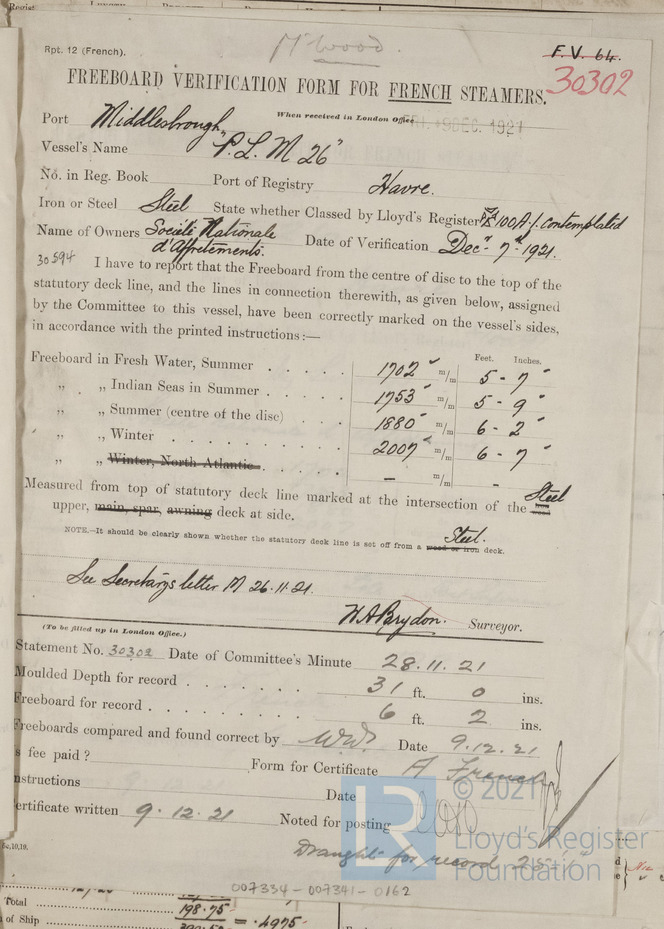 Rpt. 12 (French).
M'wood.
F.V. 64.
30302
FREEBOARD VERIFICATION FORM FOR FRENCH STEAMERS.
When received in London Office FRI. 9 DEC. 1921
Port Middlesbrough
Vessel's Name "P.L.M 26"
No. in Reg. Book Port of Registry Havre.
Iron or Steel Steel State whether Classed by Lloyd's Register 100A.1. contemplated
Name of Owners Société Nationale d'Affretements. Date of Verification Decr 7th 1921.
30594 I have to report that the Freeboard from the centre of disc to the top of the
statutory deck line, and the lines in connection therewith, as given below, assigned
by the Committee to this vessel, have been correctly marked on the vessel's sides,
in accordance with the printed instructions:—
Feet. Inches.
Freeboard in Fresh Water, Summer . . . . . 1702 m/m 5 - 7
„ „ Indian Seas in Summer . . . . . 1753 m/m 5 - 9
„ „ Summer (centre of the disc) . . . 1880 m/m 6 - 2
„ „ Winter . . . . . . . . . . 2007 m/m 6 - 7
„ „ Winter, North Atlantic . . . . . - m/m -
Measured from top of statutory deck line marked at the intersection of the Steel
upper, main, spar, awning deck at side.
NOTE.—It should be clearly shown whether the statutory deck line is set off from a wood or iron Steel. deck.
See Secretarys letter M 26.11.21.
W A Brydon. Surveyor.
(To be filled up in London Office.)
Statement No. 30302 Date of Committee's Minute 28.11.21
Moulded Depth for record . . . . . . . 31 ft. 0 ins.
Freeboard for record . . . . . . . . . 6 ft. 2 ins.
Freeboards compared and found correct by W.W. Date 9.12.21
s fee paid? Form for Certificate A French
nstructions Date
ertificate written 9.12.21 Noted for posting
Draught for record
© 2021
Lloyd's Register
Foundation
LR
007334-007341-0162
Total 198.75
n of Ship = .4975